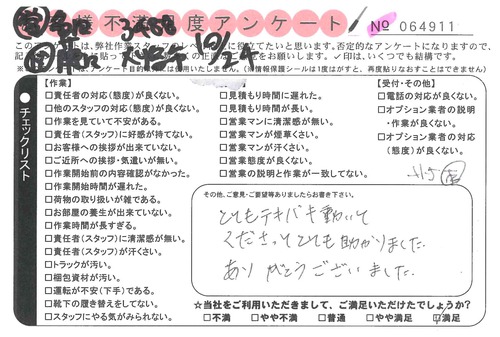 お客様不満足度アンケート
№ 064911
10/24
チェックリスト
【作業】
□責任者の対応(態度)が良くない。
□他のスタッフの対応(態度)が良くない。
□作業を見ていて不安がある。
□責任者(スタッフ)に好感が持てない。
□お客様への挨拶が出来ていない。
□ご近所への挨拶・気遣いが無い。
□作業開始前の内容確認がなかった。
□作業開始時間が遅れた。
□荷物の取り扱いが雑である。
□お部屋の養生が出来ていない。
□作業時間が長すぎる。
□責任者(スタッフ)に清潔感が無い。
□責任者(スタッフ)が汗くさい。
□トラックが汚い。
□梱包資材が汚い。
□運転が不安(下手)である。
□靴下の履き替えをしてない。
□スタッフにやる気がみられない。
【営業】
□見積もり時間に遅れた。
□見積もり時間が長い。
□営業マンに清潔感が無い。
□営業マンが煙草くさい。
□営業マンが汗くさい。
□営業態度が良くない。
□営業の説明と作業が一致してない。
【受付・その他】
□電話の対応が良くない。
□オプション業者の説明
・作業が良くない。
□オプション業者の対応
(態度)が良くない。
その他、ご意見・ご要望等ありましたらお書き下さい。
とてもテキパキ動いて
くださってとても助かりました。
ありがとうございました。
☆当社をご利用いただきまして、ご満足いただけたでしょうか?
□不満 □やや不満 □普通 □やや満足 □満足